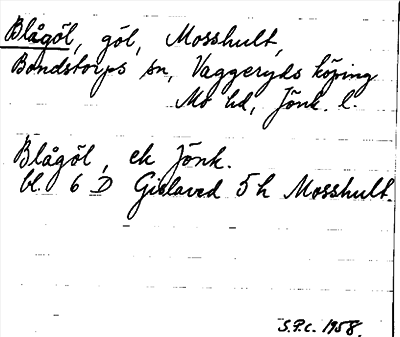 Blågöl, göl, Mosshult,
Bondstorps sn, Vaggeryds köping
Mo hd, Jönk. l.
Blågöl, ek Jönk.
bl. 6 D Gislaved 5h Mosshult.
S.P.c. 1958.